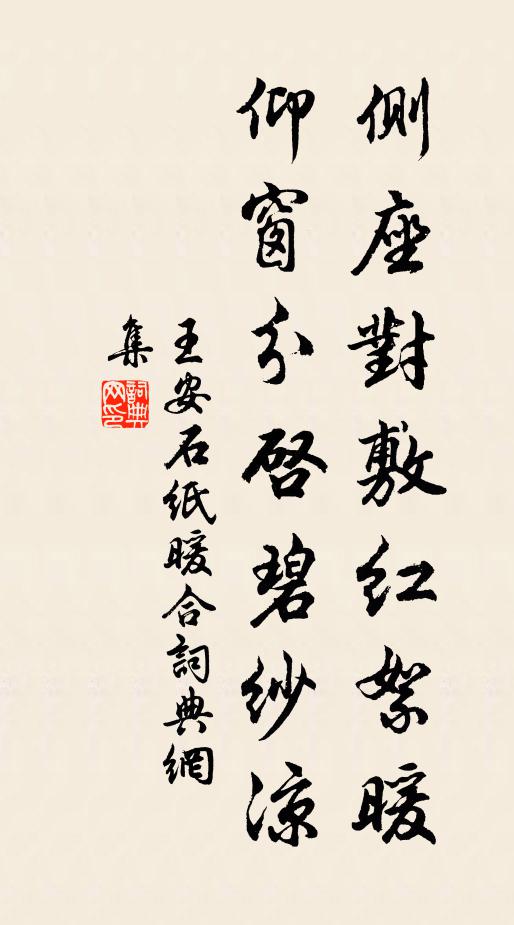 側座對敷紅絮暖
仰窗分啓碧紗涼
王安石紙暖合詞典網
集
詞典
网印